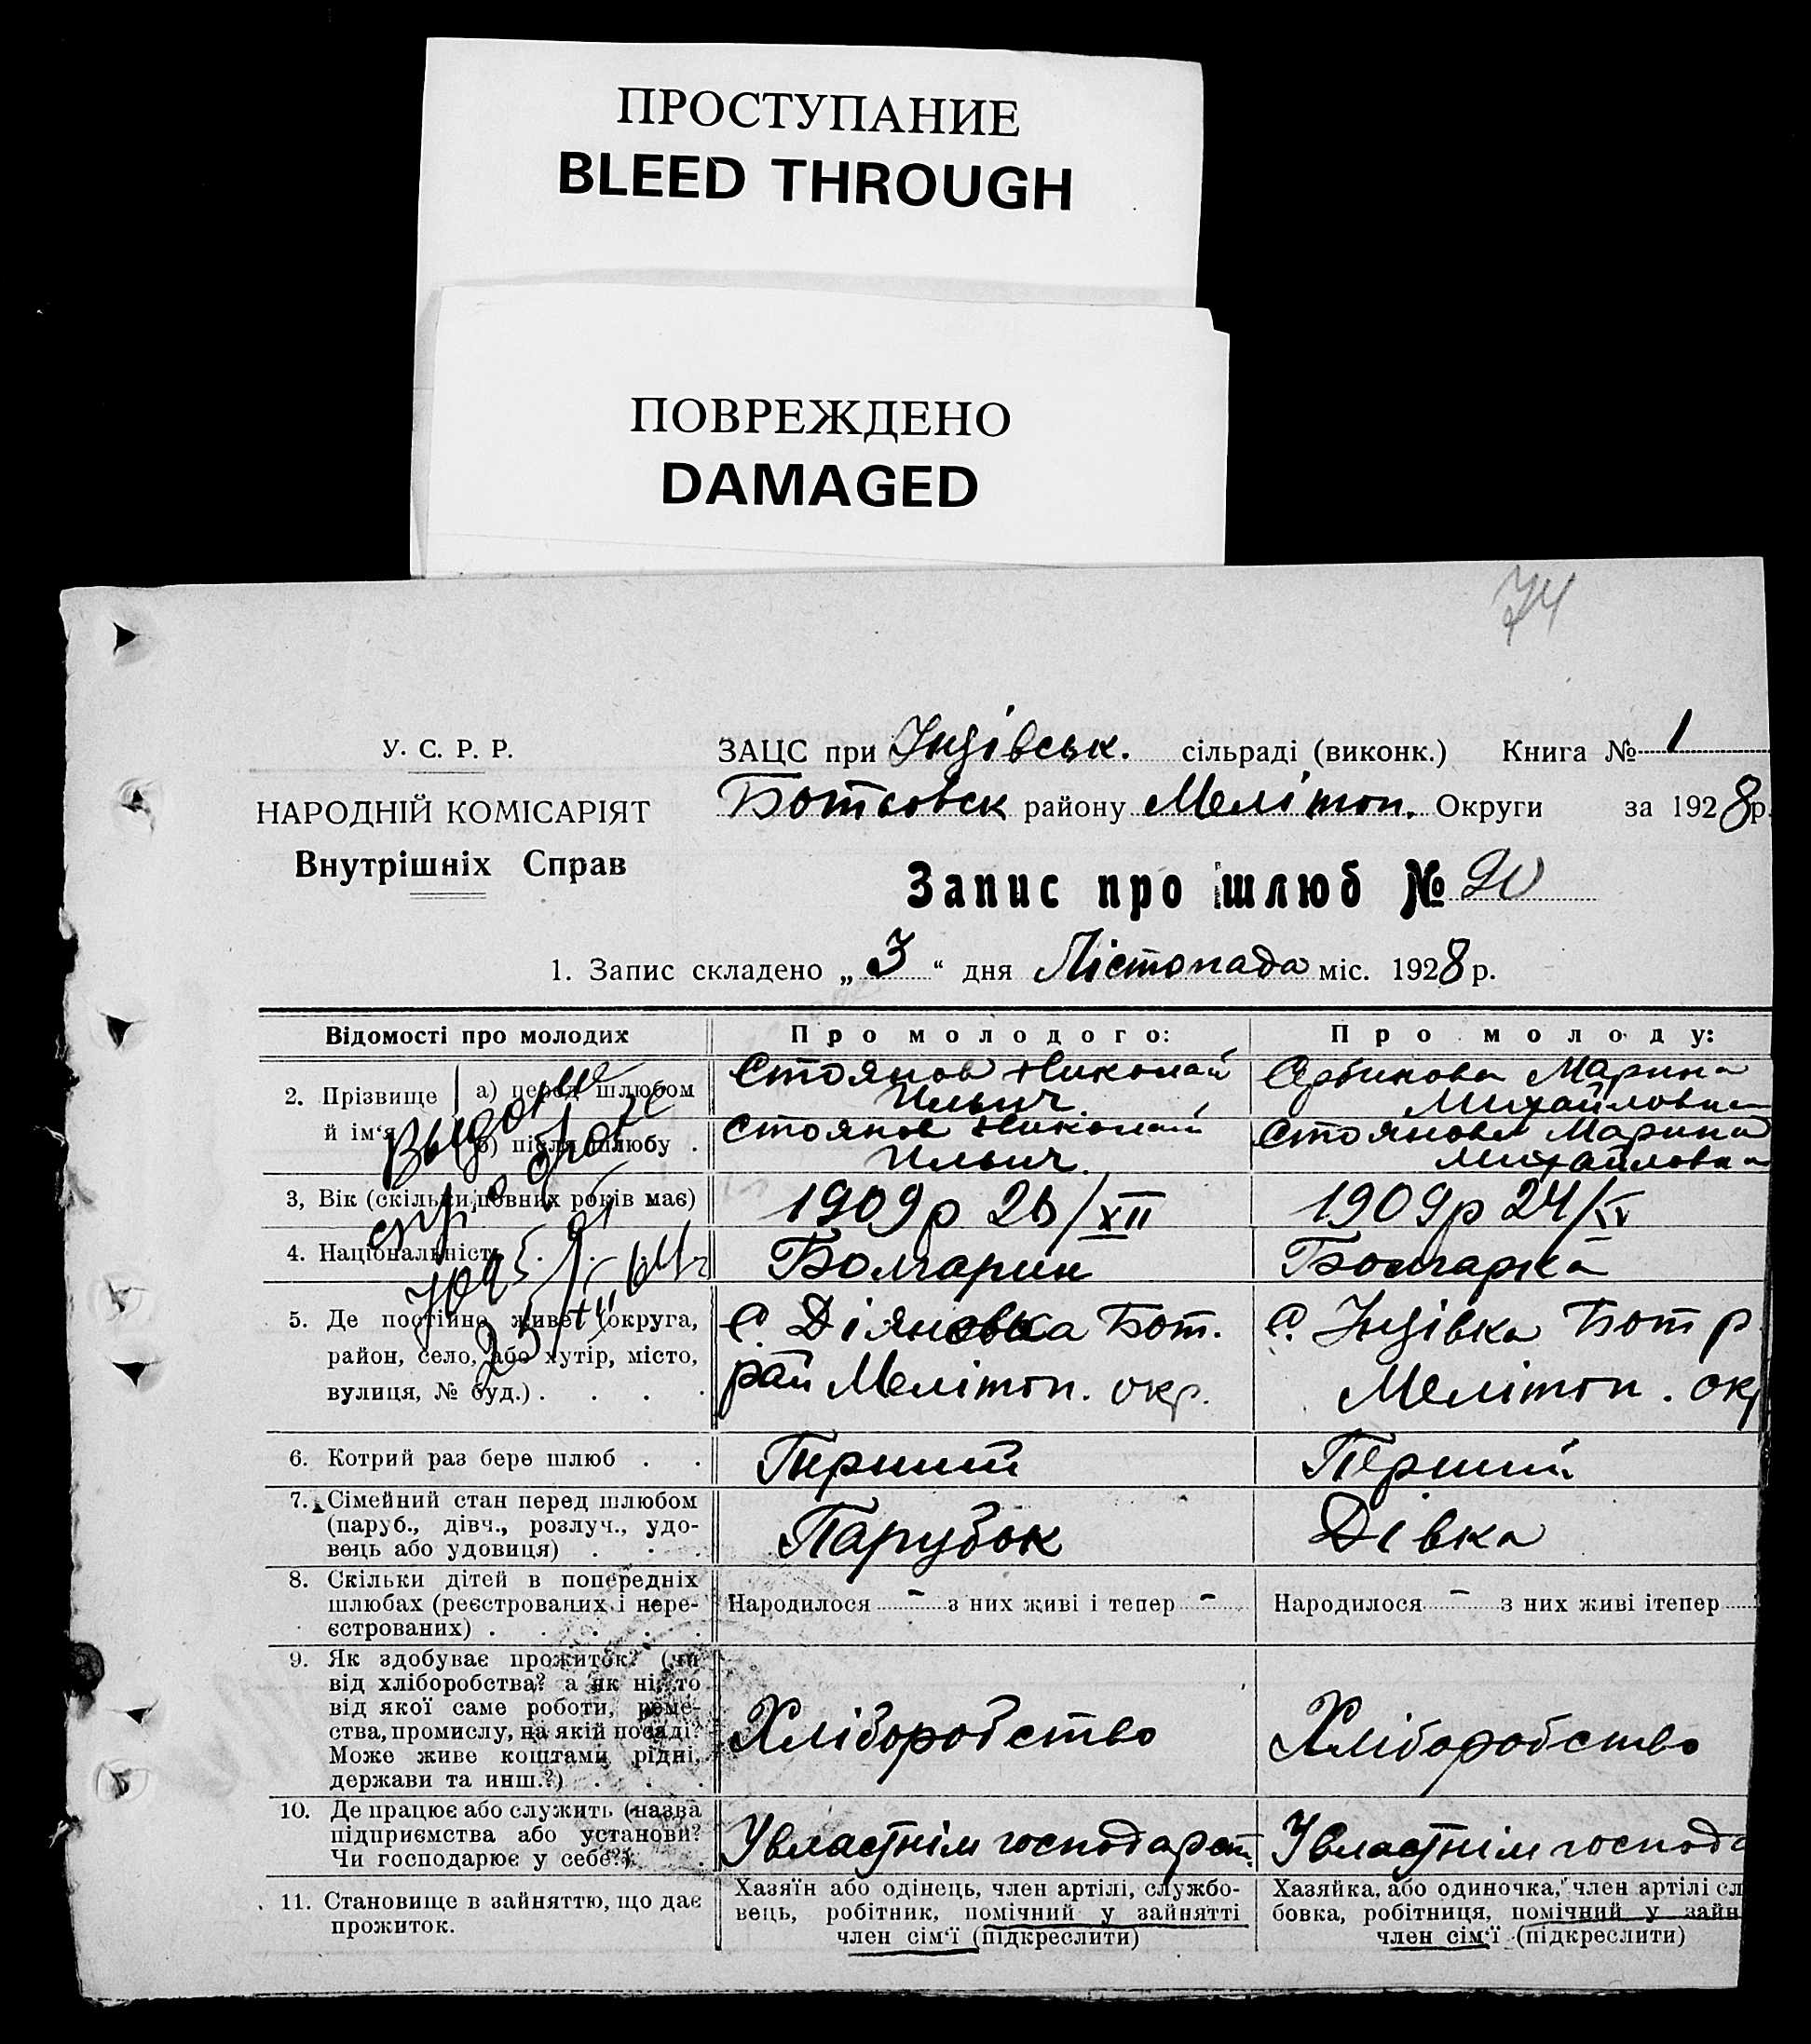 ПРОСТУПАНИЕ
BLEED THROUGH
ПОВРЕЖДЕНО
DAMAGED
74
У. С. Р. Р.
НАРОДНІЙ КОМІСАРІЯТ
Внутрішніх Справ
ЗАЦС при Інзівськ. сільраді (виконк.) Книга № 1
Ботіевск району Мелітоп. Округи за 1928р.
Запис про шлюб № 20
1. Запис складено „3“ дня Лістопада міс. 1928р.
Відомості про молодих
Про молодого:
Про молоду:
2. Прізвище й ім‘я
а) перед шлюбом
Стоянов Николай
Ильич.
Марина
Михайловна
б) після шлюбу .
Стоянов Николай
Ильич.
Стоянова Марина
Михайловна
3, Вік (скільки повних років має)
1909р 2 /XII
1909р 24/IV
4. Національність . . .
Болгарин
Болгарка
5. Де постійно живе? (округа,
район, село, або хутір, місто,
вулиця, № буд.) . . . .
с. Діяновка Бот.
рай Мелітоп. окр.
с. Інзівка Бот р
Мелітоп. окр
6. Котрий раз бере шлюб . .
Перший
Перший
7. Сімейний стан перед шлюбом
(паруб., дівч., розлуч., удо-
вець або удовиця) . . .
Парубок
Дівка
8. Скільки дітей в попередніх
шлюбах (реєстрованих і нере-
єстрованих) . . . . .
Народилося - з них живі і тепер -
Народилося - з них живі ітепер
9. Як здобуває прожиток? (чи
від хліборобства? а як ні, то
від якої саме роботи, реме-
ства, промислу, на якій посаді?
Може живе коштами рідні,
держави та инш.?) . . .
Хліборобство
Хліборобство
10. Де працює або служить (назва
підприємства або установи?
Чи господарює у себе?) .
У властнім господарст.
У властнім господа
11. Становище в зайняттю, що дає
прожиток.
Хазяїн або одінець, член артілі, службо-
вець, робітник, помічний у зайнятті
член сім‘ї (підкреслити)
Хазяйка, або одиночка, член артілі сл
бовка, робітниця, помічний у зайн
член сім‘ї (підкреслити)